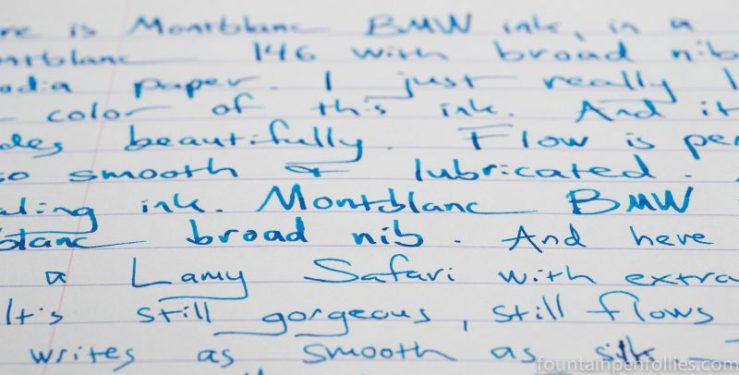 re is Montblanc BMW ink, in a
ntblanc 146 with broad nib
odia paper. I just really l
color of this ink. And it
des beautifully. Flow is per
so smooth & lubricated.
ading ink. Montblanc BMW
blanc broad nib. And here
a Lamy Safari with extra
It's still gorgeous, still flows
writes as smooth as silk -
fountainpenfollies.com